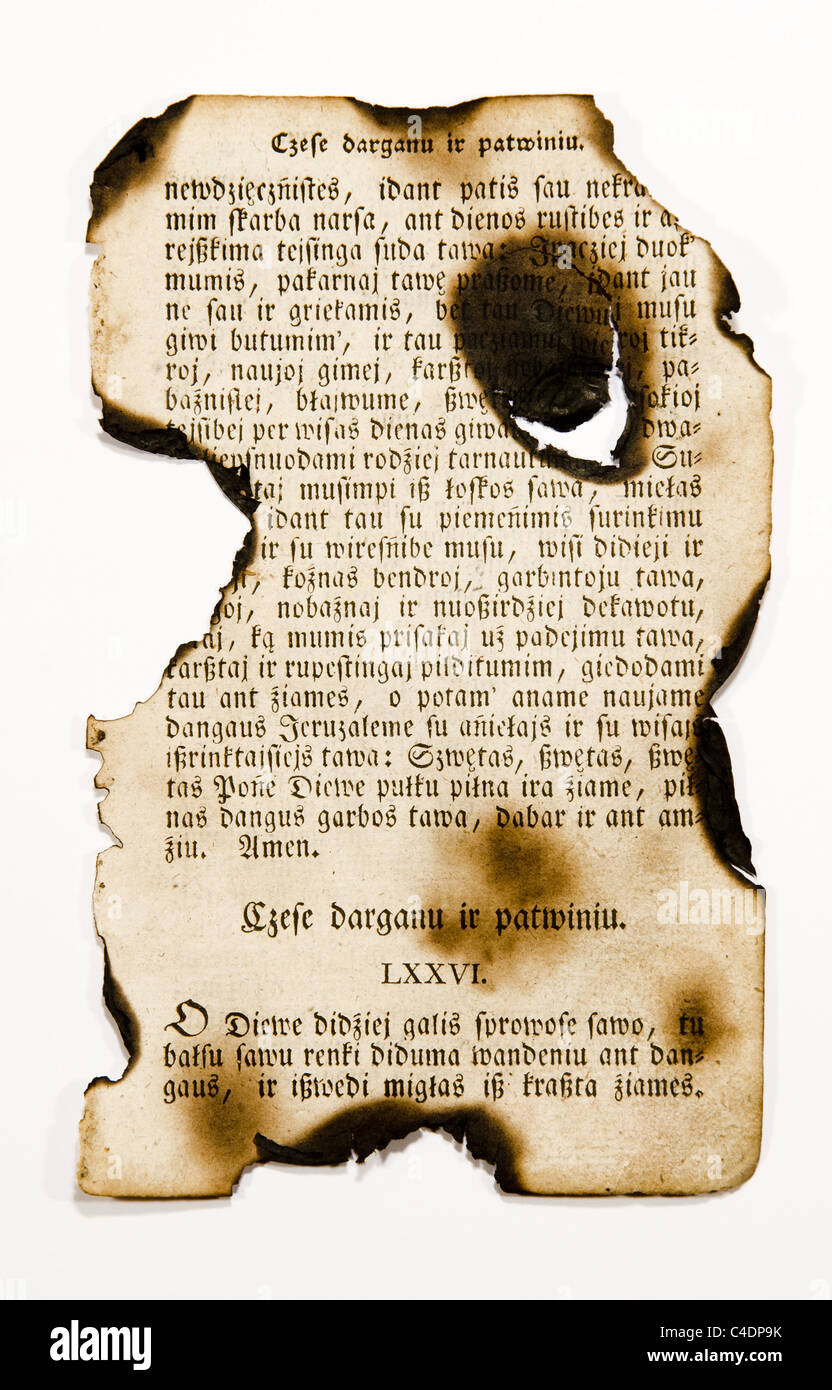 Czese darganu ir patwiniu.
newdzięczñistes, idant patis sau
mim skarba narsa, ant dienos rustibes ir
rejßkima tejsinga suda tawa: Jpacziej duok'
mumis, pakarnaj tawę praßome, idant jau
ne sau ir griekamis, bet tau Diewuj musu
giwi butumim', ir tau tik=
roj, naujoj gimej, karßtoj pa=
bażnistej, błajwume,
tejsibej per wisas dienas dwa=
rodżiej Su=
musimpi iß łoskos sawa, miełas
idant tau su piemeñimis surinkimu
ir su wiresñibe musu, wisi didieji ir
kożnas bendroj, garbintoju tawa,
nobażnaj ir nuoßirdżiej dekawotu,
ką mumis prisakaj uż padejimu tawa,
karßtaj ir rupestingaj pilditumim, giedodami
tau ant żiames, o potam' aname naujame
dangaus Jeruzaleme su añiełajs ir su wisajs
ißrinktajsiejs tawa: Szwętas, ßwętas, ßwę=
tas Pone Diewe pułku piłna ira żiame, pił=
nas dangus garbos tawa, dabar ir ant am=
żiu. Amen.
Czese darganu ir patwiniu.
LXXVI.
O Diewe didżiej galis sprowose sawo, tu
bałsu sawu renki diduma wandeniu ant dan=
gaus, ir ißwedi migłas iß kraßta żiames.
alamy
alamy
Image ID: C4DP9K
www.alamy.com